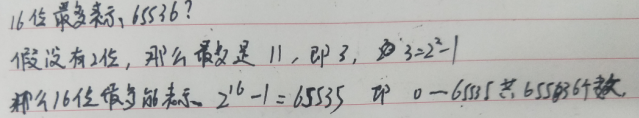 16位最多表示, 65536?
假设有2位, 那么最多是 11, 即 3, 3=2²-1
那么16位最多能表示 2¹⁶-1=65535 即 0—65535共65536个数.